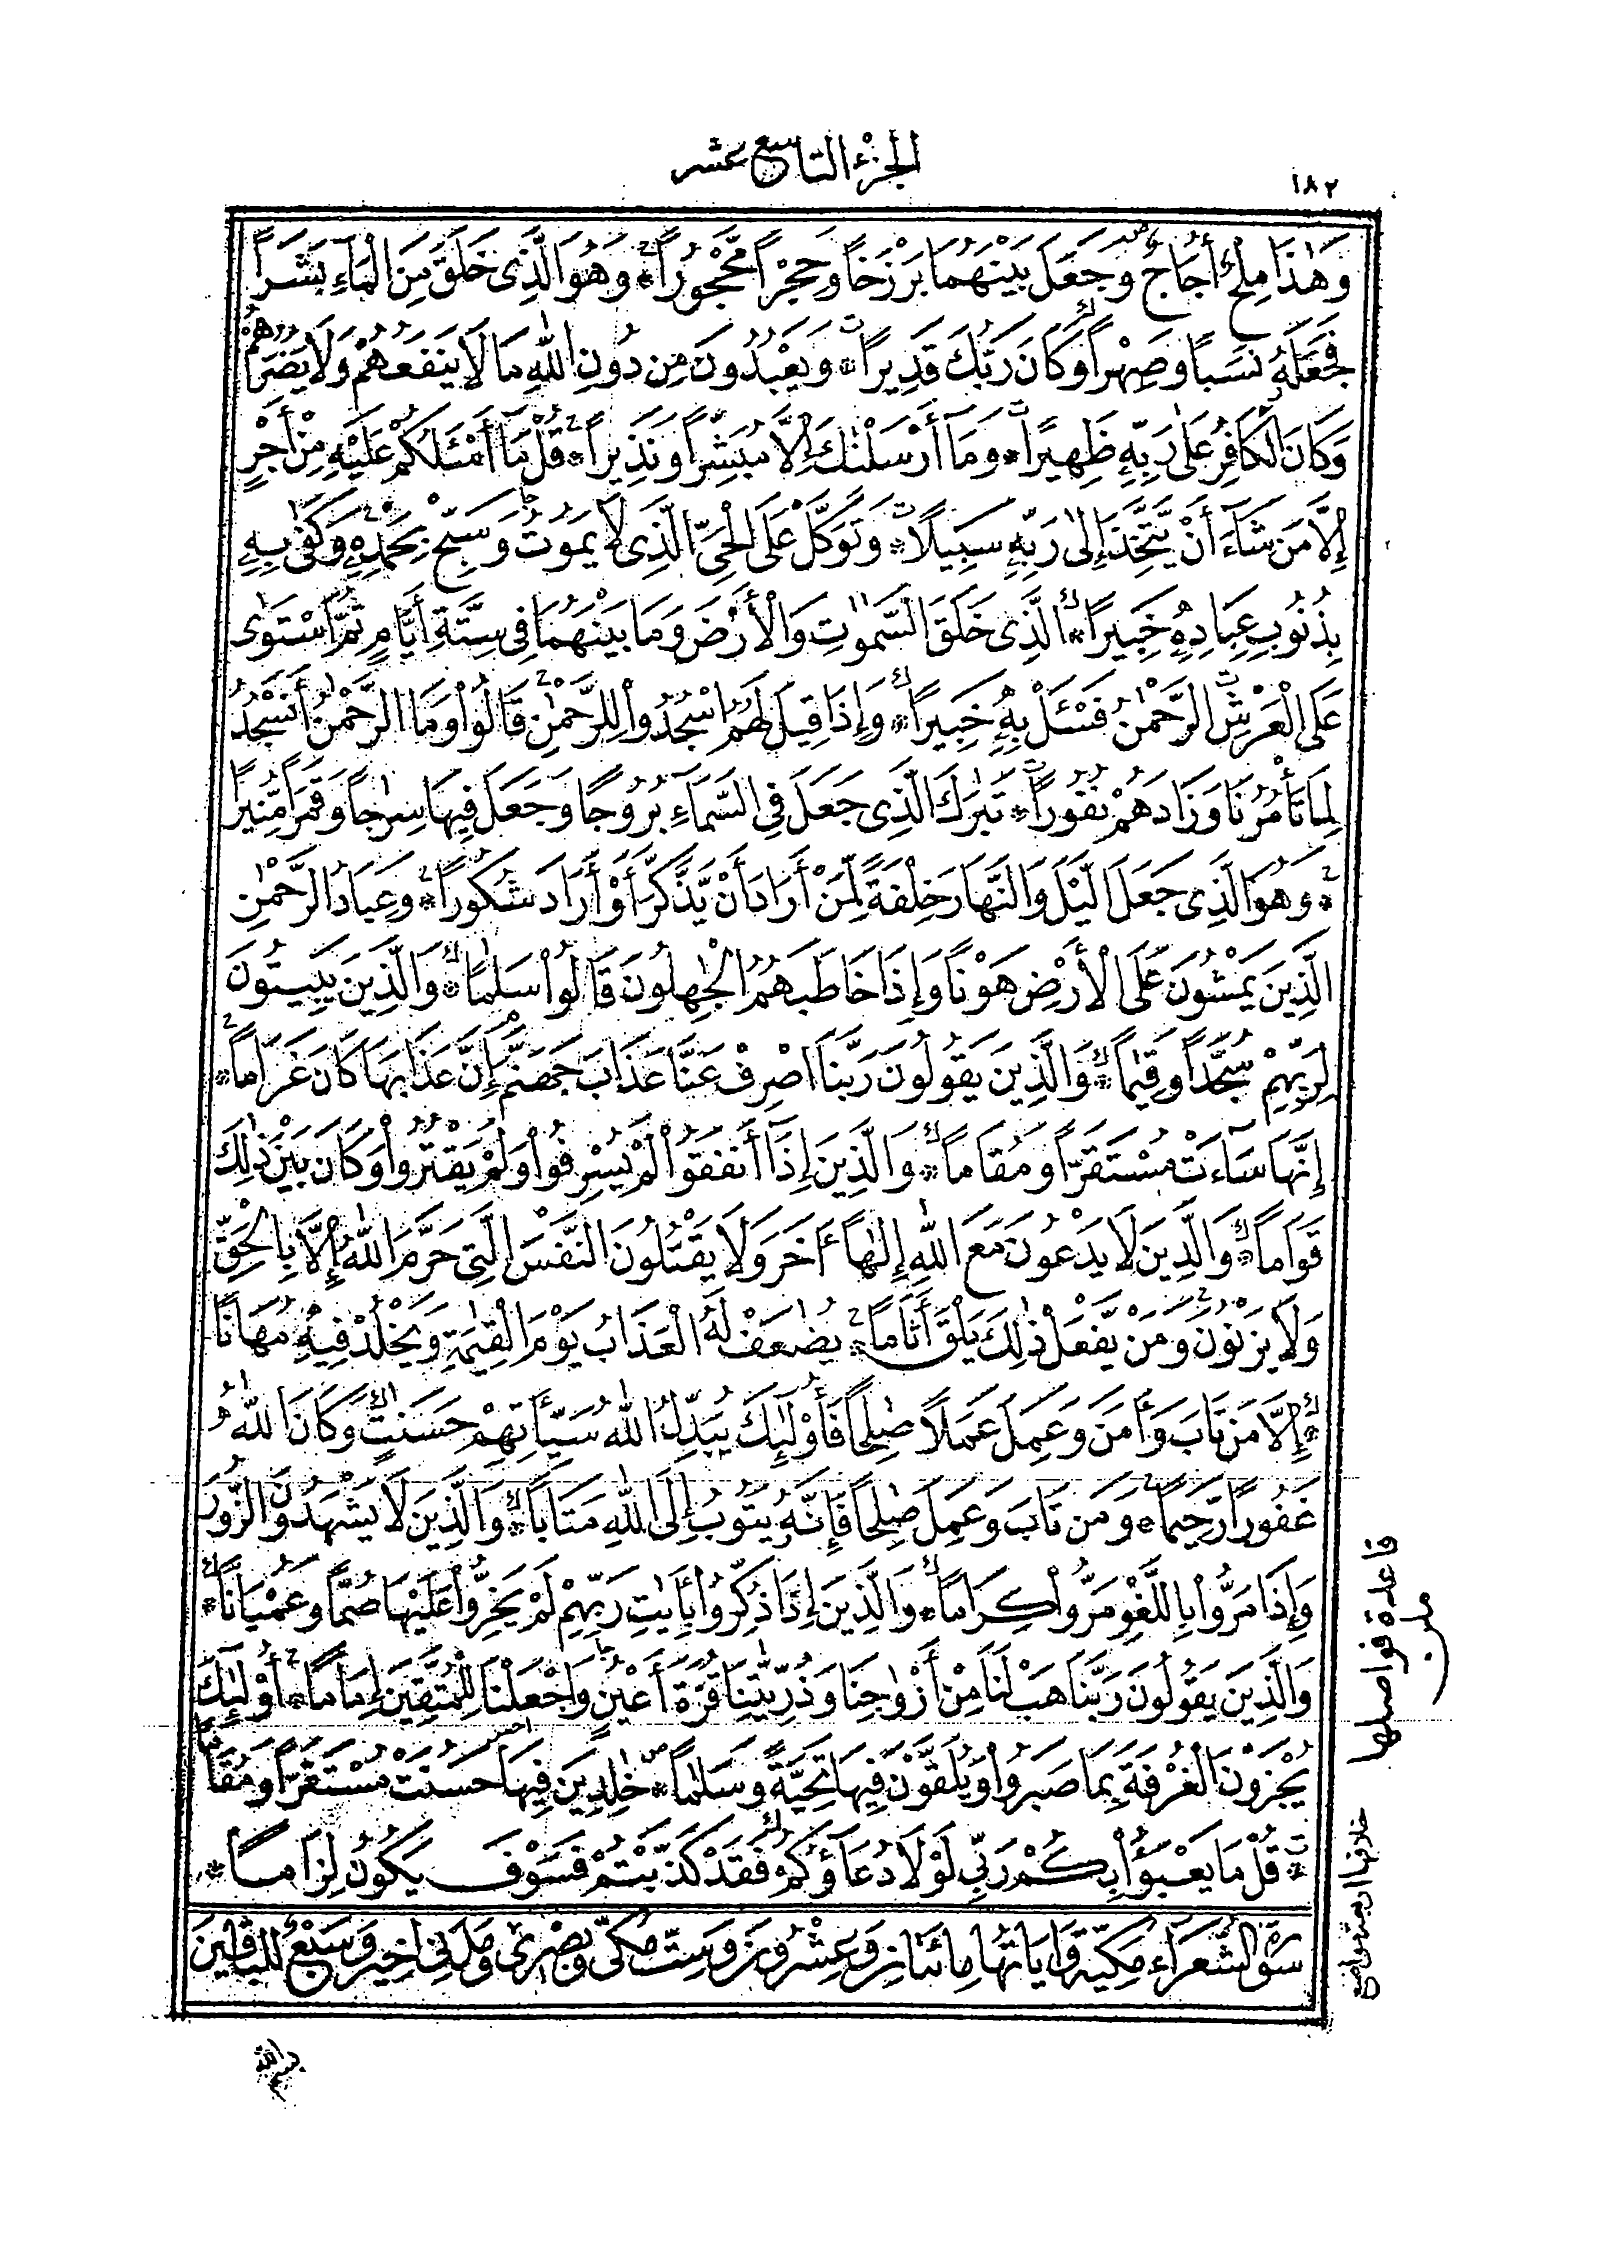 الجزء التاسع عشر
١٨٢
وَهَٰذَا مِلْحٌ أُجَاجٌ وَجَعَلَ بَيْنَهُمَا بَرْزَخًا وَحِجْرًا مَّحْجُورًا * وَهُوَ الَّذِى خَلَقَ مِنَ الْمَآءِ بَشَرًا
فَجَعَلَهُ نَسَبًا وَصِهْرًا وَكَانَ رَبُّكَ قَدِيرًا * وَيَعْبُدُونَ مِن دُونِ اللَّهِ مَا لَا يَنفَعُهُمْ وَلَا يَضُرُّهُمْ
وَكَانَ الْكَافِرُ عَلَىٰ رَبِّهِ ظَهِيرًا * وَمَآ أَرْسَلْنَٰكَ إِلَّا مُبَشِّرًا وَنَذِيرًا * قُلْ مَآ أَسْـَٔلُكُمْ عَلَيْهِ مِنْ أَجْرٍ
إِلَّا مَن شَآءَ أَنْ يَّتَّخِذَ إِلَىٰ رَبِّهِ سَبِيلًا * وَتَوَكَّلْ عَلَى الْحَىِّ الَّذِى لَا يَمُوتُ وَسَبِّحْ بِحَمْدِهِ وَكَفَىٰ بِهِ
بِذُنُوبِ عِبَادِهِ خَبِيرًا * الَّذِى خَلَقَ السَّمَٰوَٰتِ وَالْأَرْضَ وَمَا بَيْنَهُمَا فِى سِتَّةِ أَيَّامٍ ثُمَّ اسْتَوَىٰ
عَلَى الْعَرْشِ الرَّحْمَٰنُ فَسْـَٔلْ بِهِ خَبِيرًا * وَإِذَا قِيلَ لَهُمُ اسْجُدُوا لِلرَّحْمَٰنِ قَالُوا وَمَا الرَّحْمَٰنُ أَنَسْجُدُ
لِمَا تَأْمُرُنَا وَزَادَهُمْ نُفُورًا * تَبَٰرَكَ الَّذِى جَعَلَ فِى السَّمَآءِ بُرُوجًا وَجَعَلَ فِيهَا سِرَٰجًا وَقَمَرًا مُّنِيرًا
* وَهُوَ الَّذِى جَعَلَ الَّيْلَ وَالنَّهَارَ خِلْفَةً لِّمَنْ أَرَادَ أَنْ يَّذَّكَّرَ أَوْ أَرَادَ شُكُورًا * وَعِبَادُ الرَّحْمَٰنِ
الَّذِينَ يَمْشُونَ عَلَى الْأَرْضِ هَوْنًا وَإِذَا خَاطَبَهُمُ الْجَٰهِلُونَ قَالُوا سَلَٰمًا * وَالَّذِينَ يَبِيتُونَ
لِرَبِّهِمْ سُجَّدًا وَقِيَٰمًا * وَالَّذِينَ يَقُولُونَ رَبَّنَا اصْرِفْ عَنَّا عَذَابَ جَهَنَّمَ إِنَّ عَذَابَهَا كَانَ غَرَامًا *
إِنَّهَا سَآءَتْ مُسْتَقَرًّا وَمُقَامًا * وَالَّذِينَ إِذَآ أَنفَقُوا لَمْ يُسْرِفُوا وَلَمْ يَقْتُرُوا وَكَانَ بَيْنَ ذَٰلِكَ
قَوَامًا * وَالَّذِينَ لَا يَدْعُونَ مَعَ اللَّهِ إِلَٰهًا ءَاخَرَ وَلَا يَقْتُلُونَ النَّفْسَ الَّتِى حَرَّمَ اللَّهُ إِلَّا بِالْحَقِّ
وَلَا يَزْنُونَ وَمَنْ يَّفْعَلْ ذَٰلِكَ يَلْقَ أَثَامًا * يُضَٰعَفْ لَهُ الْعَذَابُ يَوْمَ الْقِيَٰمَةِ وَيَخْلُدْ فِيهِ مُهَانًا
* إِلَّا مَن تَابَ وَءَامَنَ وَعَمِلَ عَمَلًا صَٰلِحًا فَأُولَٰٓئِكَ يُبَدِّلُ اللَّهُ سَيِّـَٔاتِهِمْ حَسَنَٰتٍ وَكَانَ اللَّهُ
غَفُورًا رَّحِيمًا * وَمَن تَابَ وَعَمِلَ صَٰلِحًا فَإِنَّهُ يَتُوبُ إِلَى اللَّهِ مَتَابًا * وَالَّذِينَ لَا يَشْهَدُونَ الزُّورَ
وَإِذَا مَرُّوا بِاللَّغْوِ مَرُّوا كِرَامًا * وَالَّذِينَ إِذَا ذُكِّرُوا بِـَٔايَٰتِ رَبِّهِمْ لَمْ يَخِرُّوا عَلَيْهَا صُمًّا وَعُمْيَانًا *
وَالَّذِينَ يَقُولُونَ رَبَّنَا هَبْ لَنَا مِنْ أَزْوَٰجِنَا وَذُرِّيَّٰتِنَا قُرَّةَ أَعْيُنٍ وَاجْعَلْنَا لِلْمُتَّقِينَ إِمَامًا * أُولَٰٓئِكَ
يُجْزَوْنَ الْغُرْفَةَ بِمَا صَبَرُوا وَيُلَقَّوْنَ فِيهَا تَحِيَّةً وَسَلَٰمًا * خَٰلِدِينَ فِيهَا حَسُنَتْ مُسْتَقَرًّا وَمُقَامًا
* قُلْ مَا يَعْبَؤُا بِكُمْ رَبِّى لَوْلَا دُعَآؤُكُمْ فَقَدْ كَذَّبْتُمْ فَسَوْفَ يَكُونُ لِزَامًا *
سورة الشعراء مكية وآياتها مائتان وعشرون وست مكى وبصرى ومدنى اخير وسبع للباقين
قاعدة فواصلها
ملن
بسم الله